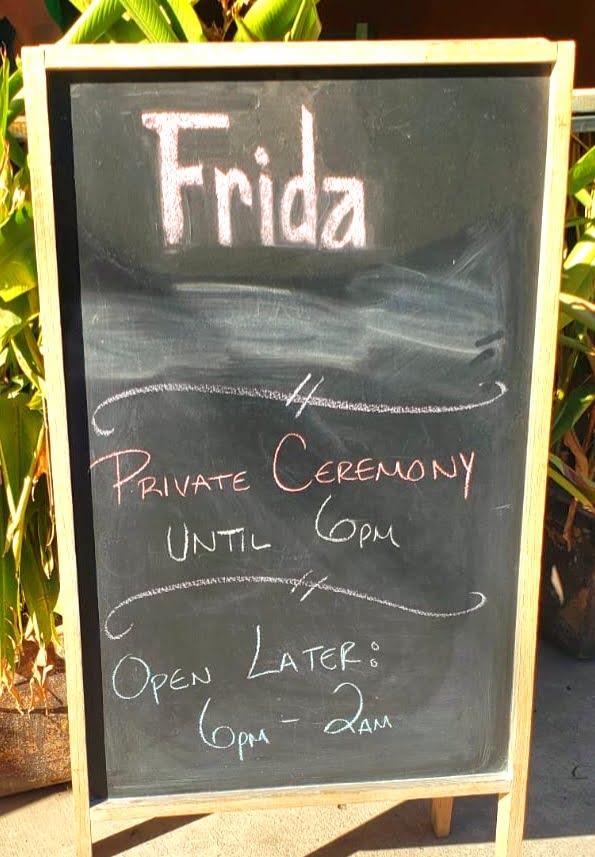 Frida
PRIVATE CEREMONY
UNTIL 6PM
OPEN LATER:
6PM - 2AM